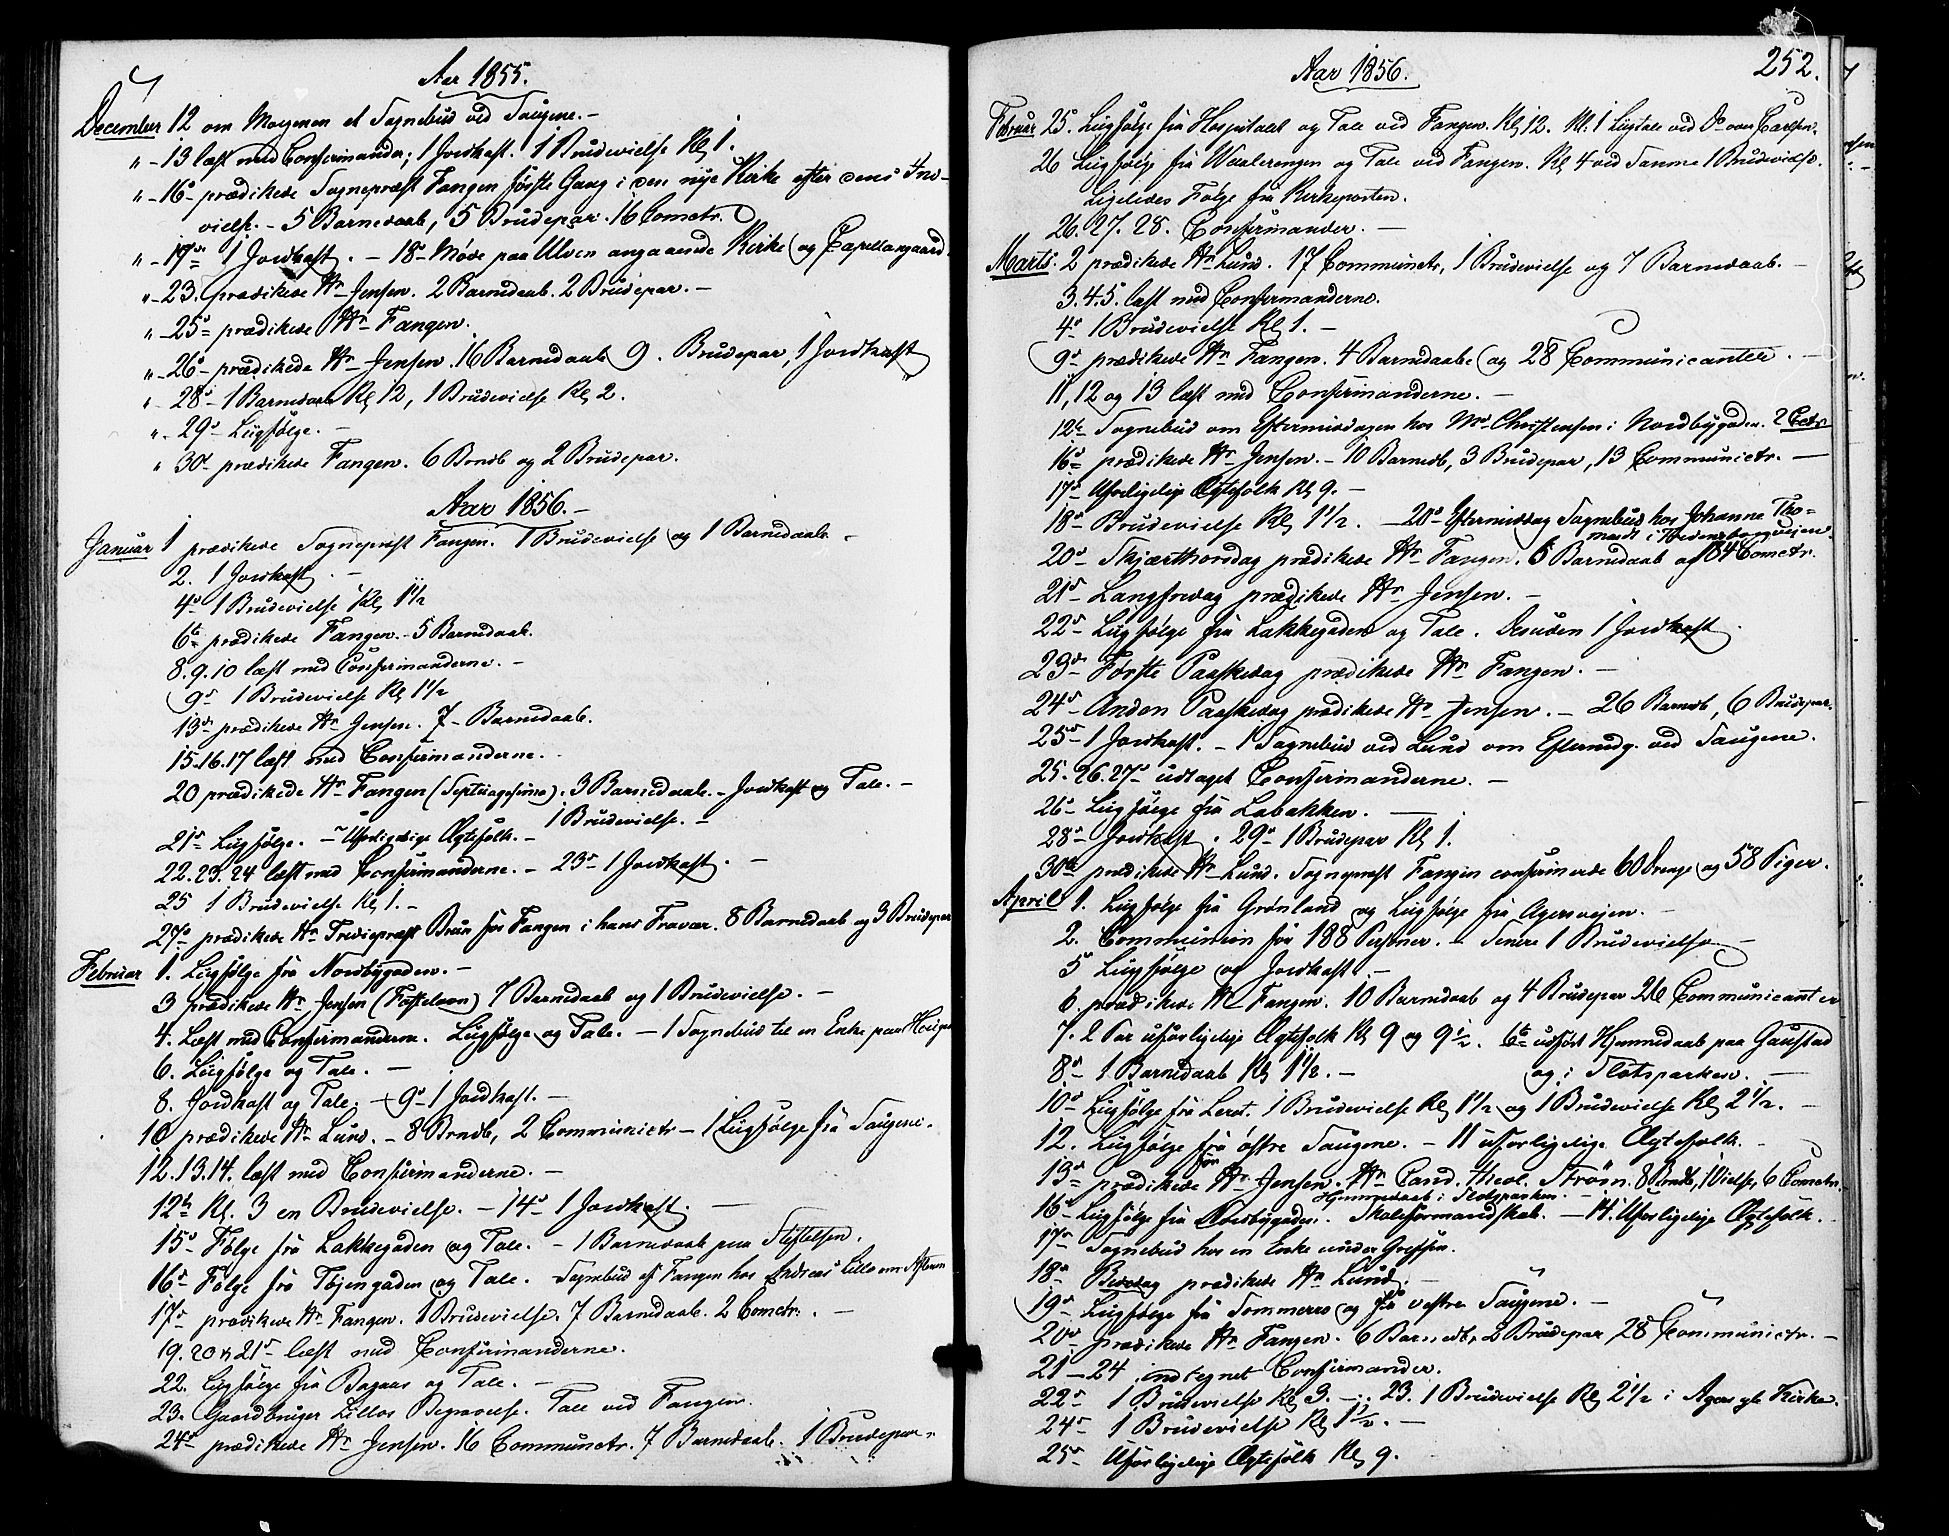 Aar 1855.
December 12 om Morgenen et Sognebud ved Saugene. -
" - 13 læst med Confirmander; 1 Jordkast. 1 Brudevielse Kl 1.
" - 16d prædikede Sognepræst Fangen første Gang i den nye Kirke efter dens Ind-
vielse. - 5 Barnedaab, 5 Brudepar. 16 Comctr.
" - 17d 1 Jordkast. - 18d Møde paa Ulven angaaende Kirke og Capellangaard.
" - 23. prædikede Hr Jensen. 2 Barnedaab. 2 Brudepar. -
" - 25d prædikede Hr Fangen.
" - 26d prædikede Hr Jensen. 16 Barnedaab 9. Brudepar, 1 Jordkast
" - 28d 1 Barnedaab Kl 12, 1 Brudevielse Kl 2.
" - 29d Liigfølge. -
" 30d prædikede Fangen. 6 Brndb og 2 Brudepar.
Aar 1856. -
Januar 1 prædikede Sognepræst Fangen. 1 Brudevielse og 1 Barnedaab. -
2. 1 Jordkast. -
4d 1 Brudevielse Kl 1½
6te prædikede Fangen. - 5 Barnedaab.
8. 9. 10 læst med Confirmanderne. -
9d 1 Brudevielse Kl 1½
13d prædikede Hr Jensen. 7 - Barnedaab.
15-16. 17 læst med Confirmanderne. -
20 prædikede Hr Fangen (Septuagesima). 3 Barnedaab. - Jordkast og Tale. -
1 Brudevielse. -
21d Liigfølge. - Uforligelige Ægtefolk. -
22. 23. 24 læst med Confirmanderne. - 23d 1 Jordkast. -
25 1 Brudevielse Kl 1. -
27d prædikede Hr Trediepræst Brun for Fangen i hans Fravær. 8 Barnedaab og 3 Brudepar
Februar 1. Liigfølge fra Nordbygaden. -
3 prædikede Hr Jensen (Fastelavn) 7 Barnedaab og 1 Brudevielse. -
4. Læst med Confirmanderne. Liigfølge og Tale. - 1 Sognebud til en Enke paa
6. Liigfølge og Tale. -
8. Jordkast og Tale. - 9d 1 Jordkast. -
10 prædikede Hr Lund. - 8 Brndb, 2 Communictr - 1 Liigfølge fra Saugene.
12. 13. 14. læst med Confirmanderne. -
12te Kl. 3 en Brudevielse. - 14d 1 Jordkast. -
15d Følge fra Lakkegaden og Tale. - 1 Barnedaab paa Stiftelsen.
16d Følge fra Tøjengaden og Tale. Sognebud af Fangen hos Andreas Lillo om Aftenen
17d prædikede Hr Fangen. 1 Brudevielse. 7 Barnedaab. 2 Comctr. -
19. 20 & 21d læst med Confirmanderne.
22. Liigfølge fra Bagaas og Tale. -
23. Gaardbruger Lillos Begravelse. Tale ved Fangen.
24d prædikede Hr Jensen. 16 Communctr. 7 Barnedaab. 1 Brudepar.
Aar 1856.
252.
Februar 25. Liigfølge fra Hospitalet og Tale ved Fangen. Kl 12. Kl. 1 Liigtale ved Do over Carlsen.
26 Liigfølge fra Waalerengen og Tale ved Fangen. Kl 4 ved Samme 1 Brudevielse.
Ligeledes Følge fra Kirkeporten.
26. 27. 28. Confirmander. -
Marts. 2 prædikede Hr Lund. 17 Communctr, 1 Brudevielse og 7 Barnedaab. -
3. 4. 5. læst med Confirmanderne.
4d 1 Brudevielse Kl 1. -
9d prædikede Hr Fangen. 4 Barnedaab og 28 Communicanter. -
11, 12 og 13 læst med Confirmanderne. -
12te Sognebud om Eftermiddagen hos Md Christensen i Nordbygaden. 2 Cctr
16d prædikede Hr Jensen. - 10 Barnedb, 3 Brudepar, 13 Communictr. -
17d Uforligelige Ægtefolk Kl 9. -
18d Brudevielse Kl 1½. - 20d Eftermiddag Sognebud hos Johanne Tho=
20d Skjærthorsdag prædikede Hr Fangen. 6 Barnedaab og 184 Comctr.
21d Langfredag prædikede Hr Jensen. -
22d Liigfølge fra Lakkegaden og Tale. Desuden 1 Jordkast.
23d Første Paaskedag prædikede Hr Fangen. -
24d Anden Paaskedag prædikede Hr Jensen. - 26 Barndb, 6 Brudepar.
25d 1 Jordkast. - 1 Sognebud ved Lund om Eftermdg. ved Saugene.
25. 26. 27d udtaget Confirmanderne. -
26d Liigfølge fra Labakken. -
28d Jordkast. 29d 1 Brudepar Kl 1.
30te prædikede Hr Lund. Sognepræst Fangen confirmerede 60 Drenge og 58 Piger.
April 1. Liigfølge fra Grønland og Liigfølge fra Agersveien. -
2. Communion for 188 Personer. - Senere 1 Brudevielse -
5 Liigfølge og Jordkast. -
6. prædikede Hr Fangen. 10 Barnedaab og 4 Brudepar 26 Communicanter
7. 2 Par uforligelige Ægtefolk Kl 9 og 9½. 6te udført Hjemmedaab paa Gaustad
8d 1 Barnedaab Kl 1½. - og i Slotsparken. -
10d Liigfølge fra Leret. 1 Brudevielse Kl 1½ og 1 Brudevielse Kl 2½. -
12. Liigfølge fra østre Saugene. - 11 uforligelige Ægtefolk.
13d prædikede for Hr Jensen. Hr Cand. theol. Strøm. 8 Brndb, 1 Vielse, 6 Comctr.
Hjemmedaab i Slotsparken. -
16d Liigfølge fra Nordbygaden. Skoleformandskab. - 14. Uforligelige Ægtefolk.
17d Sognebud hos en Enke under Grefsen.
18d Bededag prædikede Hr Lund. -
19d Liigfølge fra Sommerro og fra vestre Saugene. -
20d prædikede Hr Fangen. 6 Barnedb, 2 Brudepar, 28 Communictr. -
21 - 24 indtegnet Confirmander.
22d 1 Brudevielse Kl 3. - 23. 1 Brudevielse Kl 2½ i Agers gl Kirke.
24d 1 Brudevielse Kl 1½. -
25d Uforligelige Ægtefolk Kl 9.